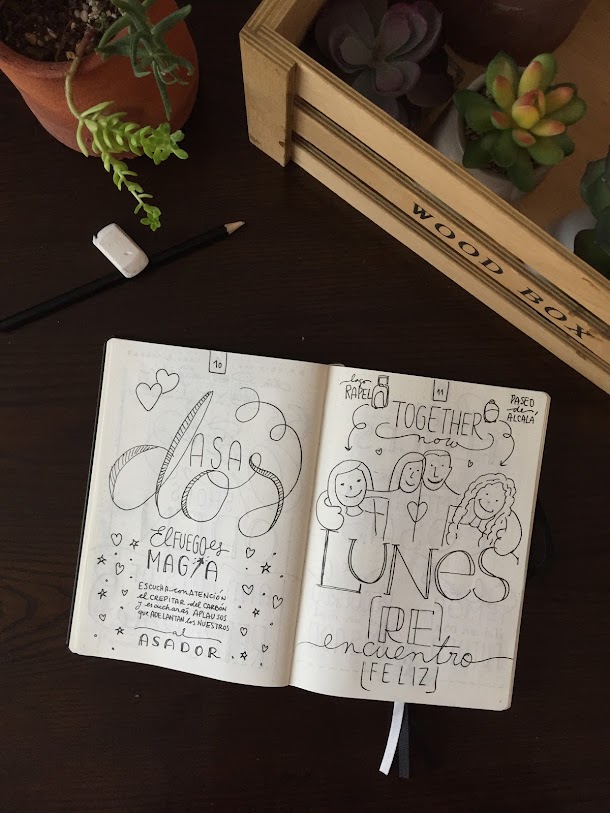 WOOD BOX
10
ASA
dos
El FUEGO es
MAGIA
ESCUCHA con ATENCIÓN
el CREPITAR del CARBÓN
y escucharás APLAUSOS
que ADELANTAN los NUESTROS
al
ASADOR
11
lago
RAPEL
PASEO
de
ALCALÁ
TOGETHER
now
LUNES
[RE]
encuentro
[FELIZ]